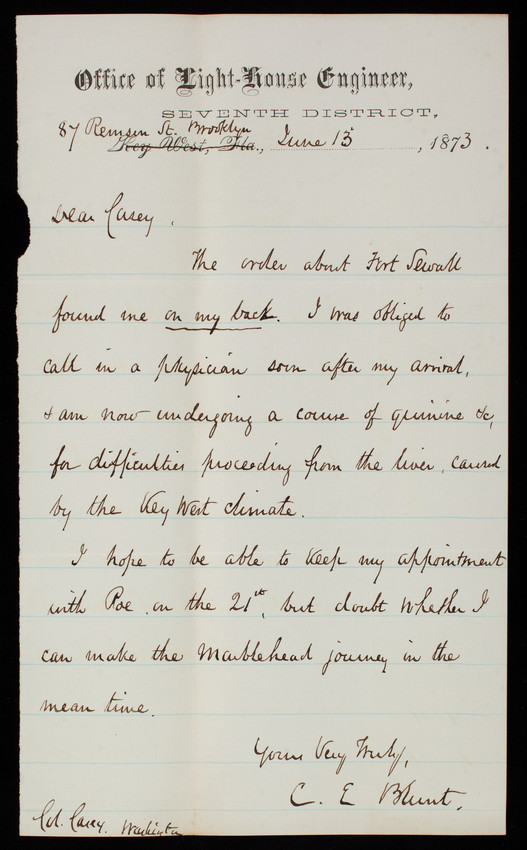 Office of Light-House Engineer,
SEVENTH DISTRICT,
87 Remsen St. Brooklyn
Key West, Fla., June 13, 1873.
Dear Casey,
The order about Fort Sewall
found me on my back. I was obliged to
call in a physician soon after my arrival,
& am now undergoing a course of quinine &c,
for difficulties proceeding from the liver, caused
by the Key West climate.
I hope to be able to keep my appointment
with Poe, on the 21st, but doubt whether I
can make the Marblehead journey in the
mean time.
Yours Very Truly,
C. E Blunt.
Col. Casey. Washington